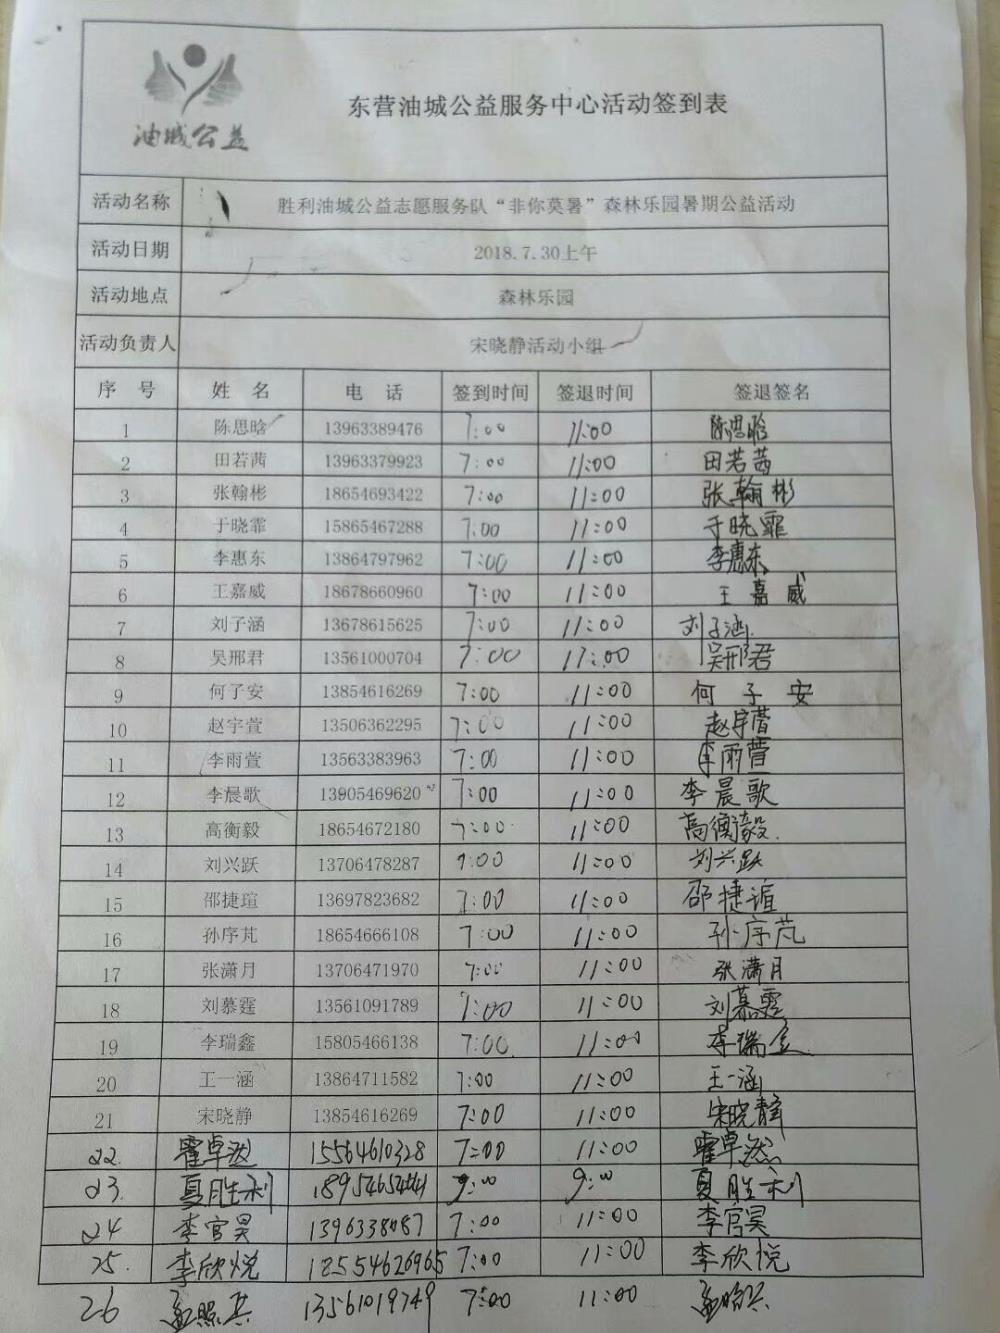 油城公益
东营油城公益服务中心活动签到表
活动名称 胜利油城公益志愿服务队“非你莫暑”森林乐园暑期公益活动
活动日期 2018.7.30上午
活动地点 森林乐园
活动负责人 宋晓静活动小组
序 号 姓 名 电 话 签到时间 签退时间 签退签名
1 陈思晗 13963389476 7:00 11:00 陈思晗
2 田若茜 13963379923 7:00 11:00 田若茜
3 张翰彬 18654693422 7:00 11:00 张翰彬
4 于晓霏 15865467288 7:00 11:00 于晓霏
5 李惠东 13864797962 7:00 11:00 李惠东
6 王嘉威 18678660960 7:00 11:00 王嘉威
7 刘子涵 13678615625 7:00 11:00 刘子涵
8 吴邢君 13561000704 7:00 11:00 吴邢君
9 何子安 13854616269 7:00 11:00 何子安
10 赵宇萱 13506362295 7:00 11:00 赵宇萱
11 李雨萱 13563383963 7:00 11:00 李雨萱
12 李晨歌 13905469620 7:00 11:00 李晨歌
13 高衡毅 18654672180 7:00 11:00 高衡毅
14 刘兴跃 13706478287 7:00 11:00 刘兴跃
15 邵捷瑄 13697823682 7:00 11:00 邵捷
16 孙序芃 18654666108 7:00 11:00 孙序芃
17 张潇月 13706471970 7:00 11:00 张潇月
18 刘慕霆 13561091789 7:00 11:00 刘慕霆
19 李瑞鑫 15805466138 7:00 11:00 李瑞鑫
20 王一涵 13864711582 7:00 11:00 王一涵
21 宋晓静 13854616269 7:00 11:00 宋晓静
22. 霍卓然 15564610328 7:00 11:00 霍卓然
23. 夏胜利 9:00 9:00 夏胜利
24 李官昊 7:00 11:00 李官昊
25. 李欣悦 18554626965 7:00 11:00 李欣悦
26 13561019749 7:00 11:00